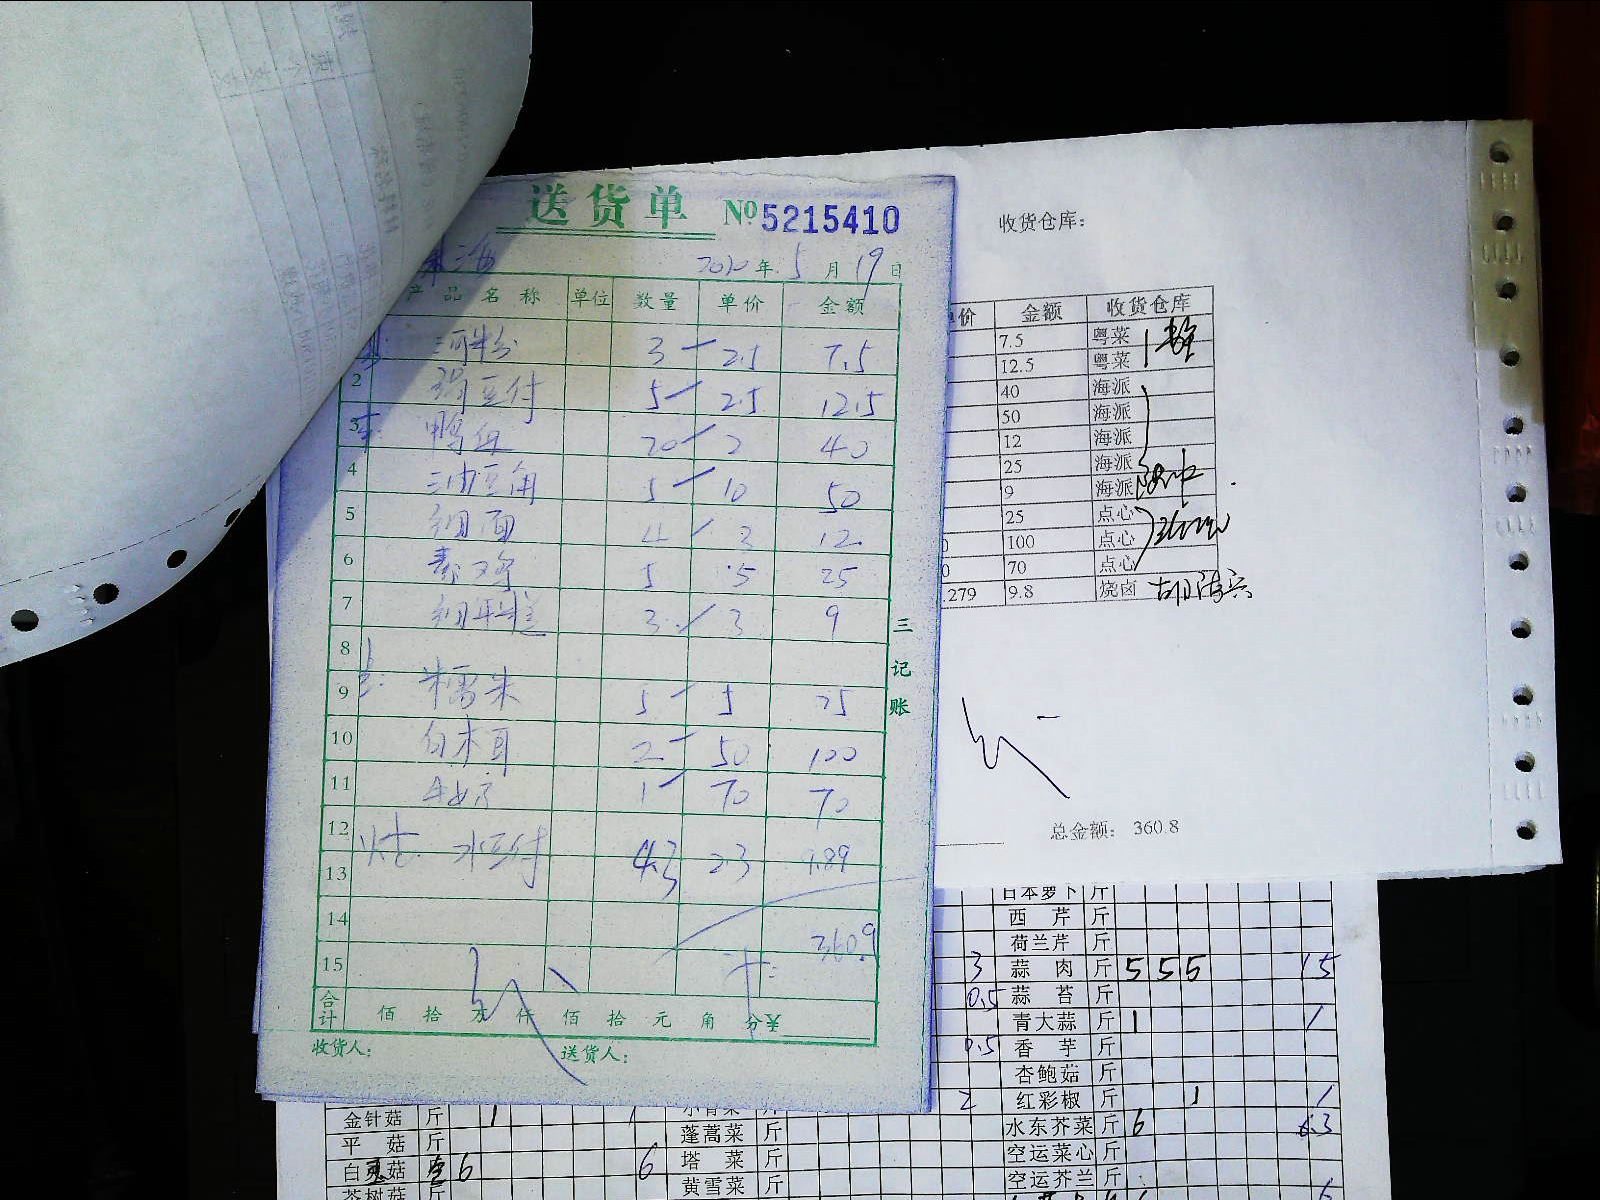 送货单 №5215410
年 5 月 19 日
产品名称 单位 数量 单价 金额
河粉 3 2.5 7.5
2 5 2.5 12.5
3 20 2 40
4 油豆角 5 10 50
5 细面 4 3 12
6 5 5 25
7 3 3 9
8
9 糯米 5 5 25
10 白木耳 2 50 100
11 1 70 70
12 水豆付 4.3 2.3 9.89
13
14 360.9
15
合计 佰 拾 万 仟 佰 拾 元 角 分 ¥
收货人: 送货人:
三 记 账
收货仓库:
价 金额 收货仓库
7.5 粤菜
12.5 粤菜
40 海派
50 海派
12 海派
25 海派
9 海派
25 点心
0 100 点心
0 70 点心
.279 9.8 烧卤
总金额: 360.8
日本萝卜 斤
西芹 斤
荷兰芹 斤
3 蒜肉 斤 5 5 5 15
0.5 蒜苔 斤
青大蒜 斤 1 1
0.5 香芋 斤
杏鲍菇 斤
2 红彩椒 斤 1 1
水东芥菜 斤 6 6.3
空运菜心 斤
空运芥兰 斤 6
金针菇 斤 1 1
平菇 斤
白灵菇 6 6
茶树菇 斤
小青菜 斤
蓬蒿菜 斤
塔菜 斤
黄雪菜 斤